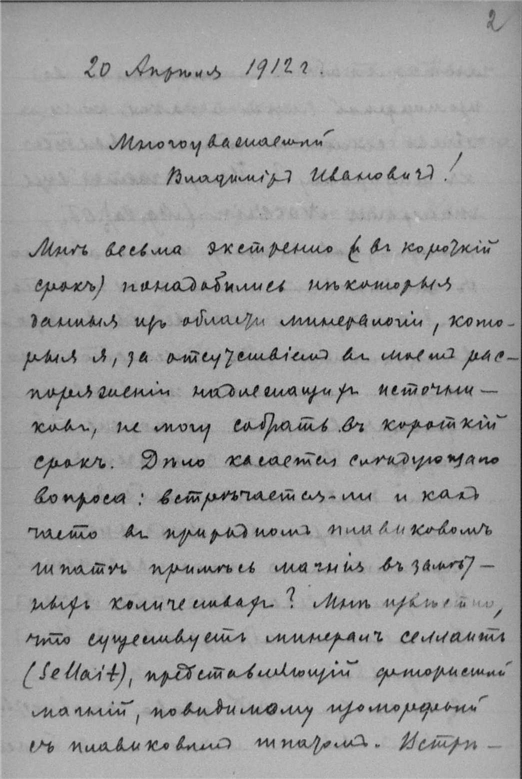 2
20 Апрѣля 1912 г.
Многоуважаемый
Владимiръ Ивановичъ!
Мнѣ весьма экстренно (и въ короткiй
срокъ) понадобились нѣкоторыя
данныя изъ области минералогiи, кото-
рыя я, за отсутствiемъ въ моемъ рас-
поряженiи надлежащихъ источни-
ковъ, не могу собрать въ короткiй
срокъ. Дѣло касается слѣдующаго
вопроса: встрѣчается-ли и какъ
часто въ природномъ плавиковомъ
шпатѣ примѣсь магнiя въ замѣт-
ныхъ количествахъ? Мнѣ извѣстно,
что существуетъ минералъ селлаитъ
(Sellait), представляющiй фтористый
магнiй, повидимому изоморфный
съ плавиковымъ шпатомъ. Встрѣ-